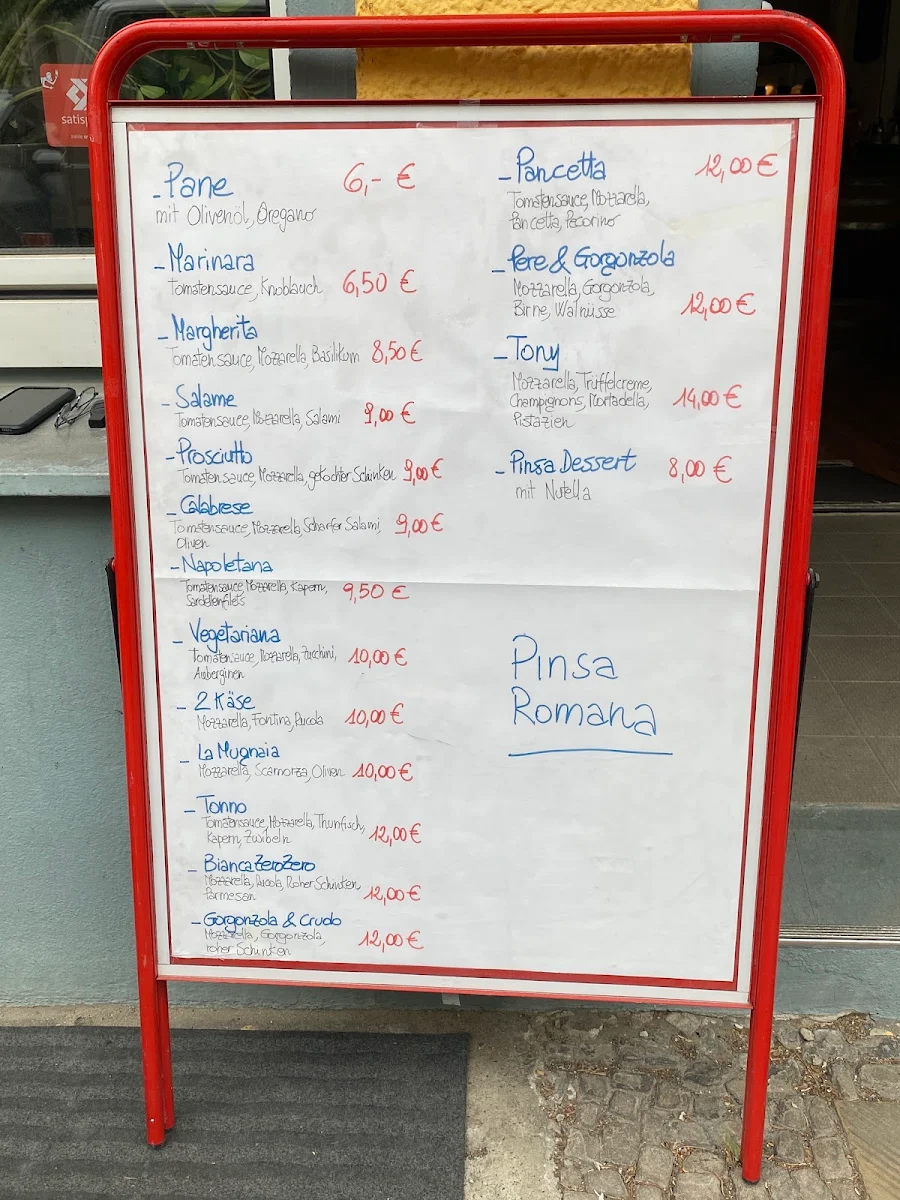 satisp
- Pane 6,- €
mit Olivenöl, Oregano
- Marinara
Tomatensauce, Knoblauch 6,50 €
- Margherita
Tomatensauce, Mozzarella, Basilikum 8,50 €
- Salame
Tomatensauce, Mozzarella, Salami 9,00 €
- Prosciutto
Tomatensauce, Mozzarella, gekochter Schinken 9,00 €
- Calabrese
Tomatensauce, Mozzarella, Scharfer Salami, 9,00 €
Oliven
- Napoletana
Tomatensauce, Mozzarella, Kapern, 9,50 €
Sardellenfilets
- Vegetariana
Tomatensauce, Mozzarella, Zucchini, 10,00 €
Auberginen
- 2 Käse
Mozzarella, Fontina, Rucola 10,00 €
- La Mugnaia
Mozzarella, Scamorza, Oliven 10,00 €
- Tonno
Tomatensauce, Mozzarella, Thunfisch, 12,00 €
Kapern, Zwibeln
- BiancaZeroZero
Mozzarella, Rucola, Roher Schinken 12,00 €
Parmesan
- Gorgonzola & Crudo
Mozzarella, Gorgonzola, 12,00 €
roher Schinken
- Pancetta 12,00 €
Tomatensauce, Mozzarella,
Pancetta, Pecorino
- Pere & Gorgonzola
Mozzarella, Gorgonzola,
Birne, Walnüsse 12,00 €
- Tony
Mozzarella, Trüffelcreme,
Champignons, Mortadella, 14,00 €
Pistazien
- Pinsa Dessert 8,00 €
mit Nutella
Pinsa
Romana